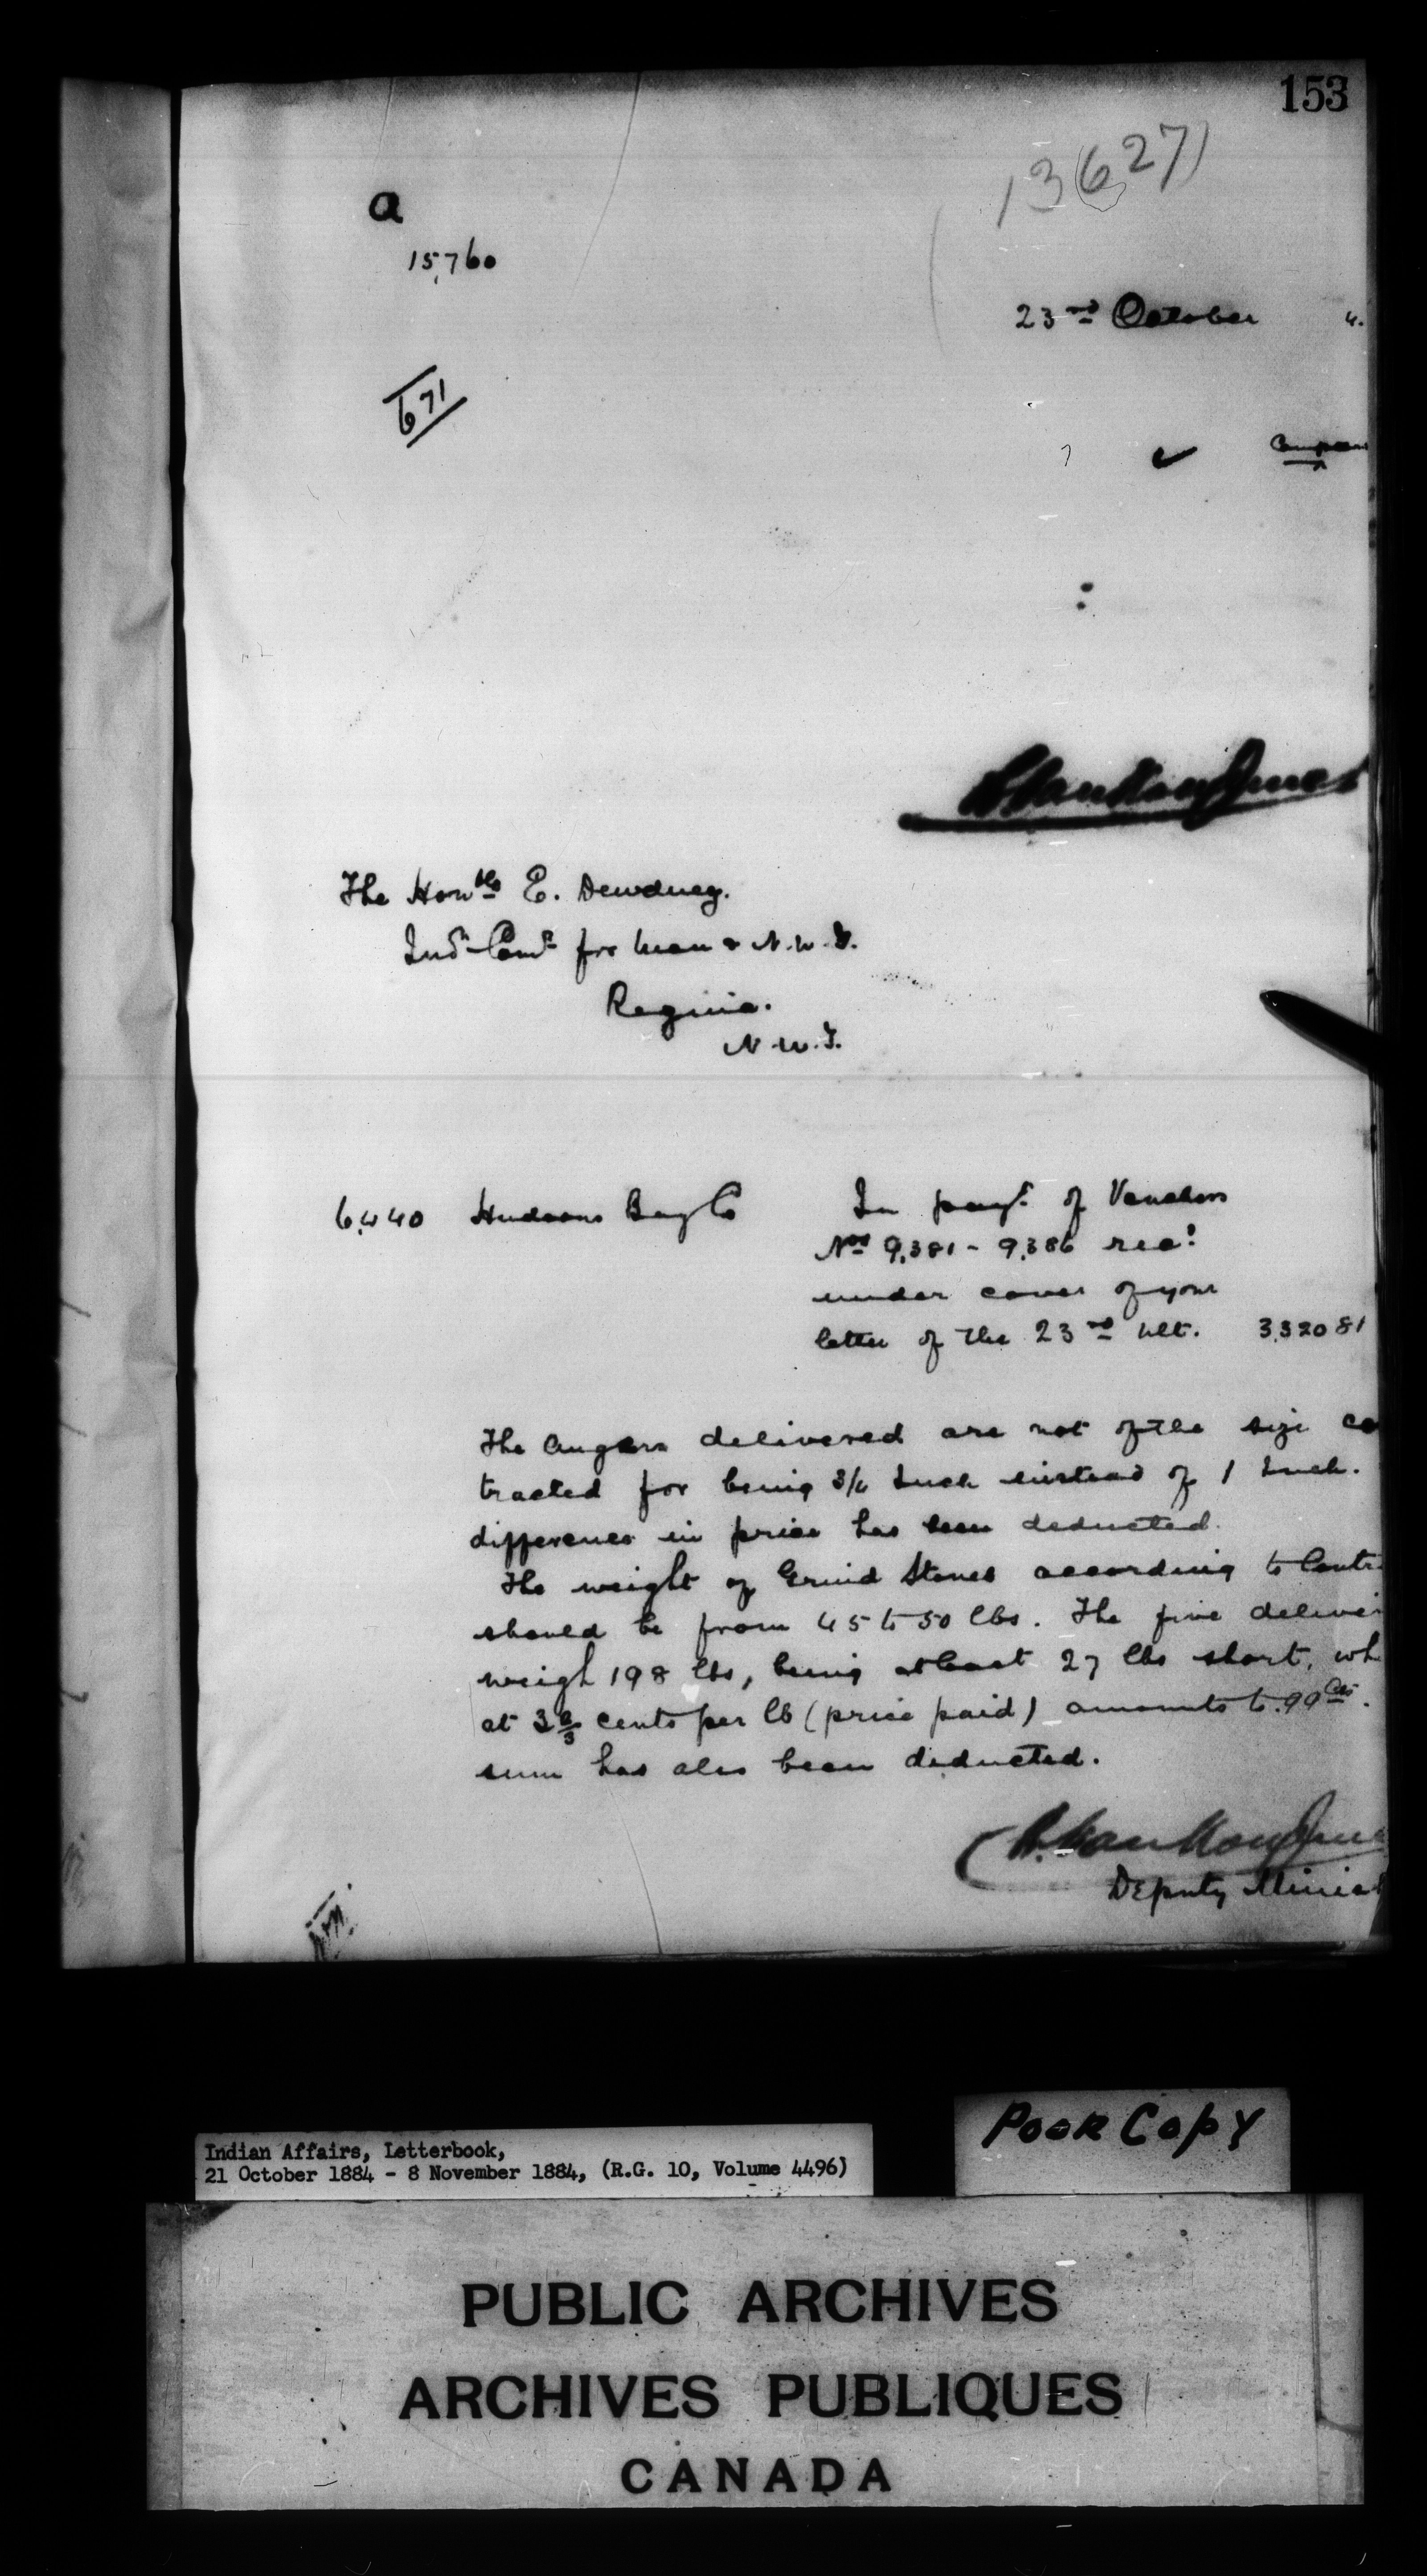 153
13627
a
15,760
23rd October 4.
671
The Honble E. Dewdney.
Indn Comr for Man & N.W.T.
Regina.
N.W.T.
6,440 Hudsons Bay Co In payt of Vouchers
Nos 9,381 - 9,386 recd
under cover of your
letter of the 23rd ult. 3,320 81
The Augers delivered are not of the size co
tracted for being 3/4 Inch instead of 1 Inch.
difference in price has been deducted.
The weight of Grind Stones according to Contr
should be from 45 to 50 lbs. The five deliver
weigh 198 lbs, being at least 27 lbs short, wh
at 3 2/3 cents per lb (price paid) amounts to .99 cts.
sum has also been deducted.
L. VanKoughne
Deputy Minist
Poor Copy
Indian Affairs, Letterbook,
21 October 1884 - 8 November 1884, (R.G. 10, Volume 4496)
PUBLIC ARCHIVES
ARCHIVES PUBLIQUES
CANADA